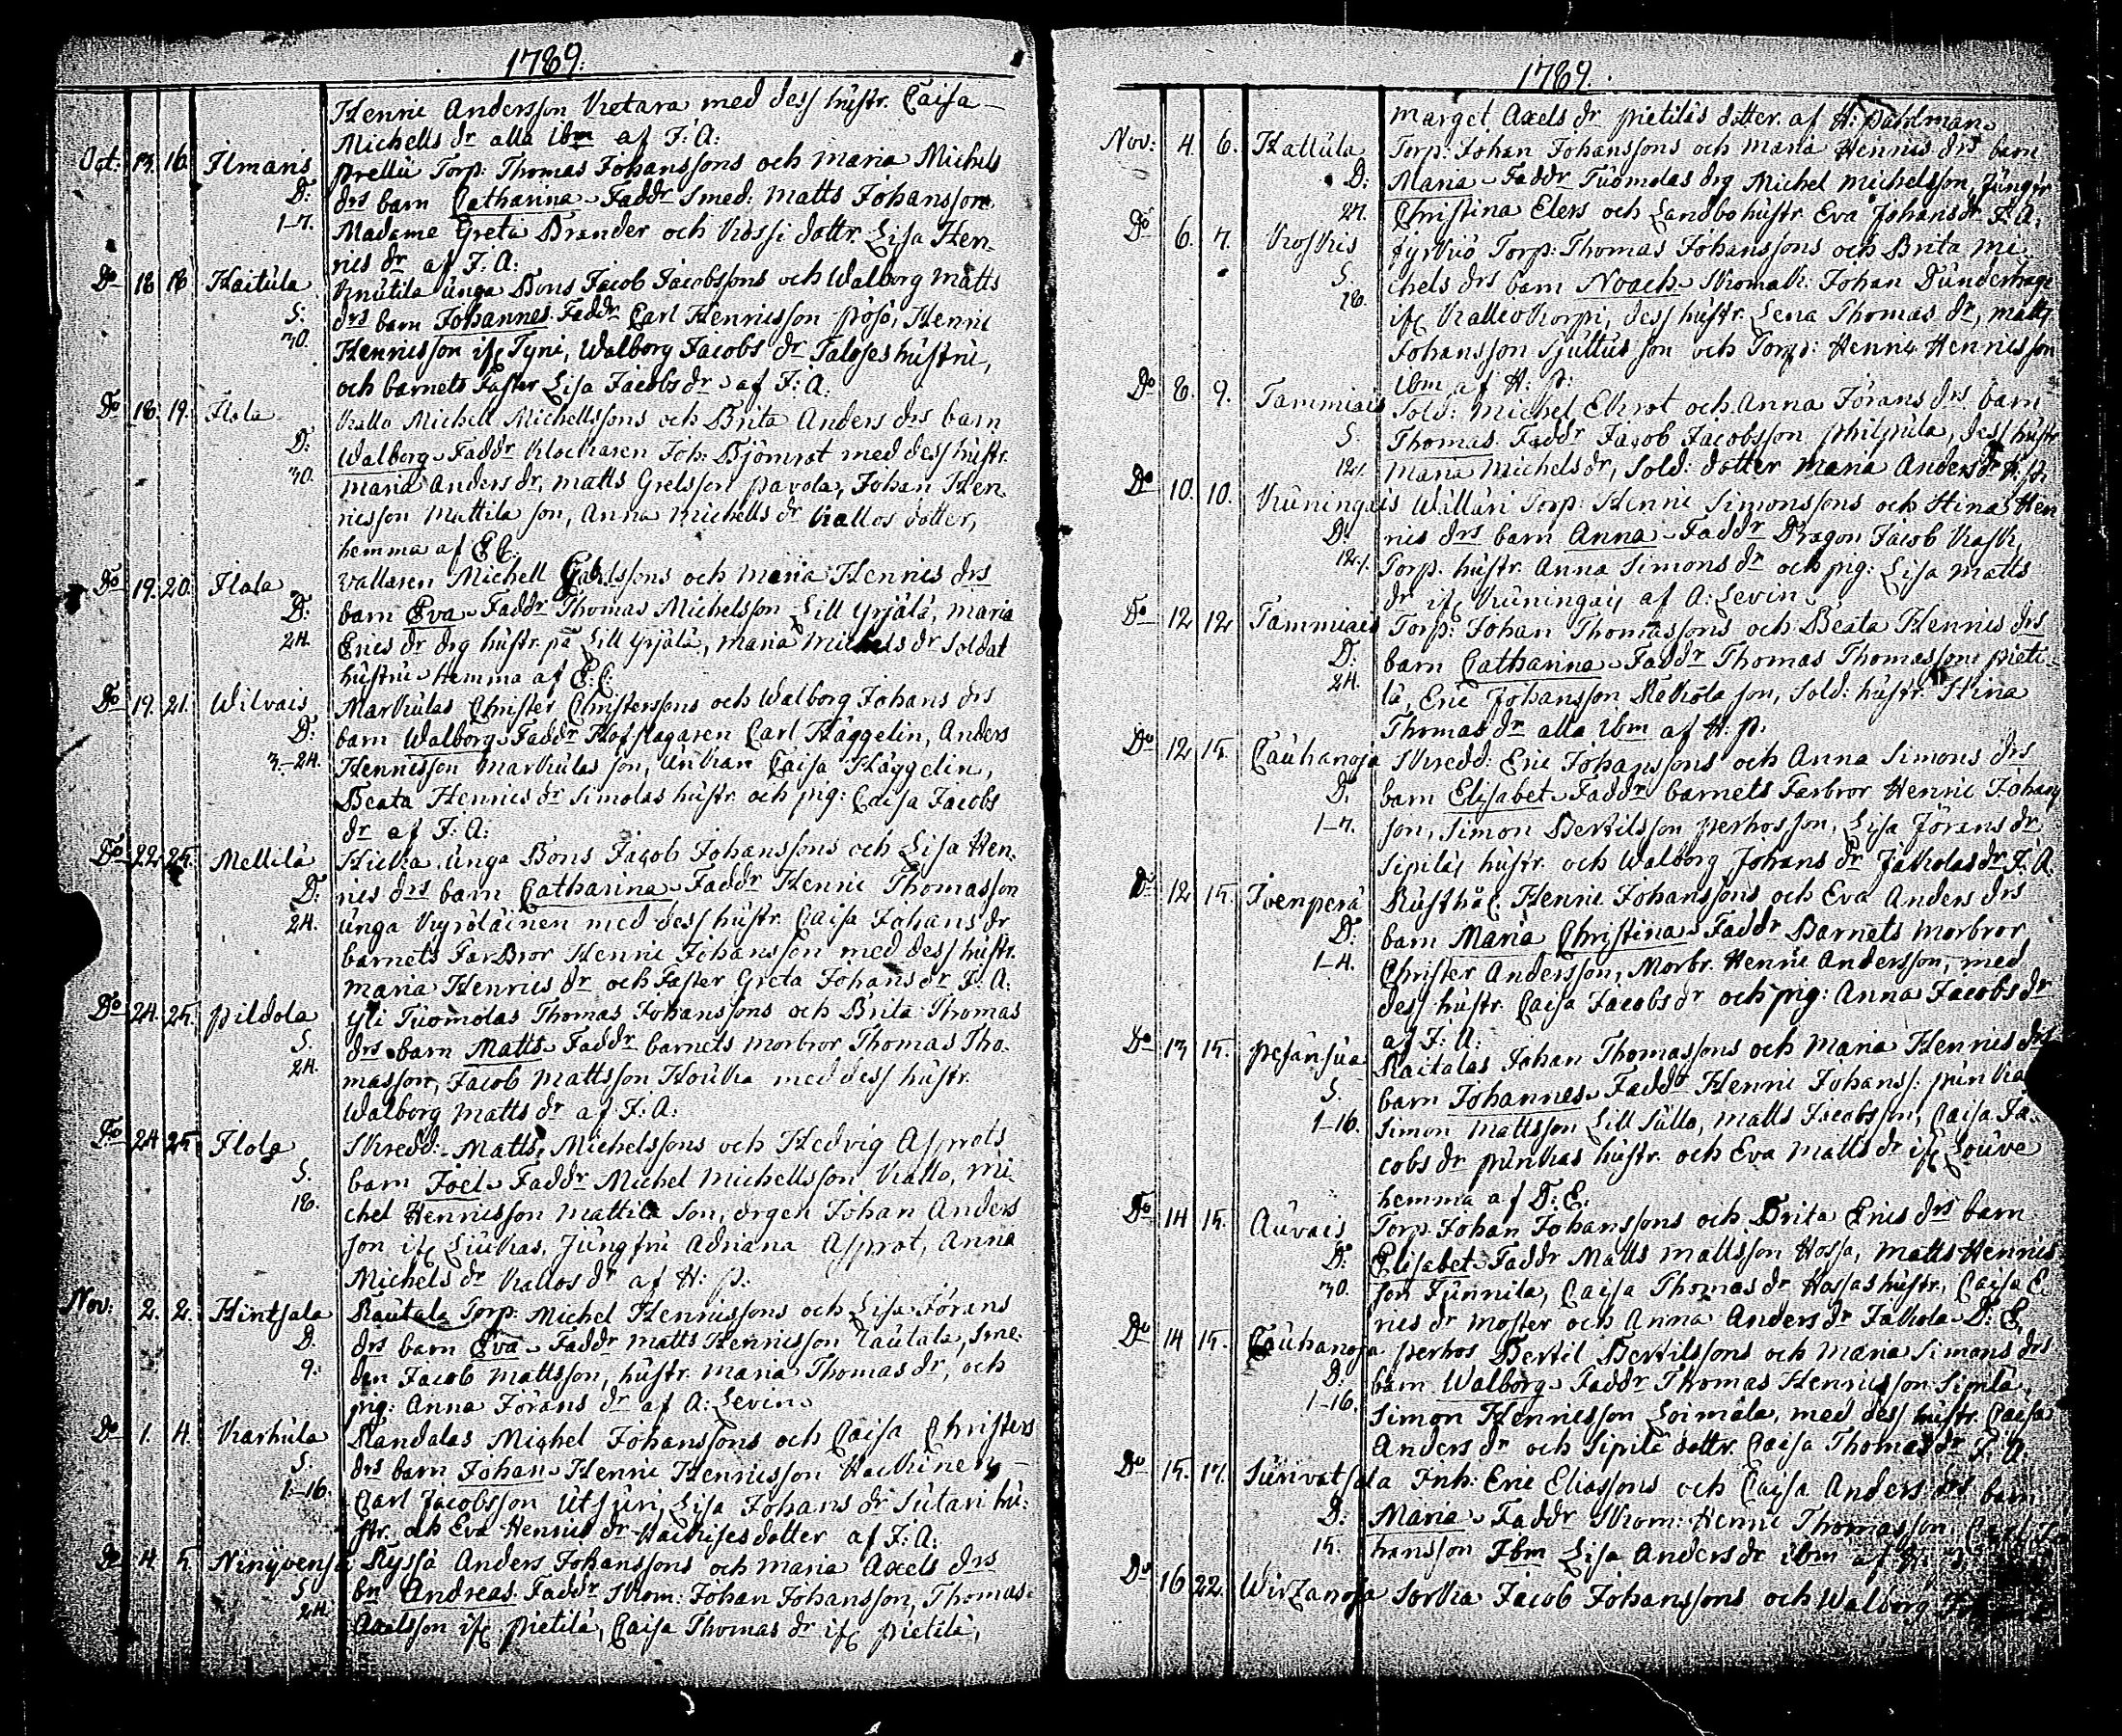 1789.
Henric Andersson Ketara med dess hustr. Caisa
Michells dr alla ibm af J: A:
Oct: 13. 16. Ilmaris Prellu Torp: Thomas Johanssons och Maria Michels
D: drs barn Catharina Faddr Smed: Matts Johansson
1-7. Madame Greta Brander och Kossi dottr. Lisa Hen-
rics dr af J: A:
Do 18 18 Haitula Knutila unga Bons Jacob Jacobssons och Walborg Matts
S: drs barn Johannes Faddr Carl Henricsson Pösö, Henric
30. Henricsson ifr Tyni, Walborg Jacobs dr Taloses hustru,
och barnets Faster Lisa Jacobs dr af J: A:
Do 18. 19. Ilola Kallo Michell Michellssons och Brita Anders drs barn
D: Walborg Faddr Klockaren Joh: Björnrot med dess hustr.
30. Maria Anders dr, Matts Grelsson Pavola, Johan Hen-
ricsson Mattila son, Anna Michells dr Kallos dotter,
hemma af E C:
Do 19. 20. Ilola Vallaren Michell Carlssons och Maria Henrics drs
D: barn Eva Faddr Thomas Michelsson Lill Yrjälä, Maria
24. Erics dr drg hustr. på Lill Yrjälä, Maria Michels dr Soldat
hustru hemma af E: C:
Do 19. 21. Wilvais Markulas Christer Christerssons och Walborg Johans drs
D: barn Walborg Faddr Hofslagaren Carl Häggelin, Anders
3.-24. Henricsson Markulas son, Enkan Caisa Häggelin,
Beata Henrics dr Simolas hustr. och pig: Caisa Jacobs
dr af J: A:
Do 22. 25. Mellilä Hicka unga Bons Jacob Johanssons och Lisa Hen-
D: rics drs barn Catharina Faddr Henric Thomasson
24. unga Kyröläinen med dess hustr. Caisa Johans dr
barnets FarBror Henric Johansson med dess hustr.
Maria Henrics dr och Faster Greta Johans dr J: A:
Do 24. 25. Pildola Yli Tuomolas Thomas Johanssons och Brita Thomas
S. drs barn Matts Faddr barnets morbror Thomas Tho-
24. masson, Jacob Mattsson Houka med dess hustr.
Walborg Matts dr af J: A:
Do 24 25 Ilola Skredd: Matts Michelssons och Hedvig Asprots
S. barn Joel Faddr Michel Michellsson Kallo, Mi-
18. chel Henricsson Mattila Son, drgen Johan Anders
son ifr Liukas, Jungfru Adriana Asprot, Anna
Michels dr Kallos dr af H: P:
Nov: 2. 2. Hintsala Rautala Torp: Michel Henricssons och Lisa Jörans
D. drs barn Eva Faddr Matts Henricsson Rautala, Sme-
9: den Jacob Mattsson, hustr. Maria Thomas dr, och
pig: Anna Jörans dr af A: Levin
Do 1. 4. Karhula Randalas Michel Johanssons och Caisa Christers
S: drs barn Johan Henric Henricsson Hackinen,
1-16. Carl Jacobsson Utsuri, Lisa Johans dr Sutari hu-
str. och Eva Henrics dr Hackises dotter af J: A:
Do 4. 5 Ninijvensu Ryssä Anders Johanssons och Maria Axels drs
S. bn Andreas Faddr Skom: Johan Johansson, Thomas
24. Axelsson ifr Pietilä, Caisa Thomas dr ifr Pietilä,
1789.
Marget Axels dr Pietiläs dotter af H: Pahlman
Nov: 4. 6. Kallula Torp: Johan Johanssons och Maria Henrics drs barn
D: Maria Faddr Tuomolas drg Michel Michelsson, Jungfr
27. Christina Elers och Landbohustr. Eva Johans dr J: A:
Do 6. 7. Koskis Jyrkiö Torp: Thomas Johanssons och Brita Mi-
S. chels drs barn Noach Skomak: Johan Dunderhage
18. ifr Kalleokorpi, dess hustr. Lena Thomas dr, Matts
Johansson Sjuttus son och Torp: Henric Henricsson
ibm af H: P:
Do 8. 9. Tammiais Sold: Michel Ekrot och Anna Jörans drs barn
S. Thomas Faddr Jacob Jacobsson Philpula, dess hustr
Maria Michels dr, Sold: dotter Maria Anders dr H: P:
Do 10. 10. Kuningais Wälläri Torp: Henric Simonssons och Stina Hen
D. rics drs barn Anna Faddr Dragon Jacob Rask,
Torp. hustr. Anna Simons dr och pig: Lisa Matts
dr ifr Kuningais af A: Levin
Do 12 12 Tammiais Torp: Johan Thomassons och Beata Henrics drs
D: barn Catharina Faddr Thomas Thomasson Pieti-
24. lä, Eric Johansson Rekola son, Sold: hustr. Stina
Thomas dr alla ibm af H: P.
Do 12 15. Cauhanoja Skredd: Eric Johanssons och Anna Simons drs
D. barn Elisabet Faddr barnets Farbror Henric Johans
1-7. son, Simon Bertilsson Perhosson, Lisa Jörans dr
Sipiläs hustr. och Walborg Johans dr Jakolas dr J: A.
Do 12 15. Ivenperä Rusthål. Henric Johanssons och Eva Anders drs
D: barn Maria Christina Faddr Barnets morbror
1-4. Christer Andersson, Morbr. Henric Andersson, med
dess hustr. Caisa Jacobs dr och pig: Anna Jacobs dr
af J: A:
Do 13 15. Pesänsua Raitalas Johan Thomassons och Maria Henrics drs
S. barn Johannes Faddr Henric Johanss: Punka
1-16. Simon Mattsson Lill Sullo, Matts Jacobsson, Caisa Ja-
cobs dr Punkas hustr. och Eva Matts dr ifr Louve
hemma af D: E.
Do 14 15. Auvais Torp: Johan Johanssons och Brita Erics drs barn
D: Elisabet Faddr Matts Mattsson Hossa, Matts Henrics
30. son Junnila, Caisa Thomas dr Hossas hustr., Caisa E-
rics dr moster och Anna Anders dr Jakola D: E.
Do 14 15. Cauhanoja Perhos Bertil Bertilssons och Maria Simons drs
D: barn Walborg Faddr Thomas Henricsson Sipilä,
1-16. Simon Henricsson Loimala, med dess hustr. Caisa
Anders dr och Sipilä dottr. Caisa Thomas dr J: A.
Do 15. 17. Sunvatsala Inh: Eric Eliassons och Caisa Anders drs barn
D: Maria Faddr Skom: Henric Thomasson, Carl Jo
15. hansson Ibm Lisa Anders dr ibm af H:
Do 16 22. Wirzanoja Sorkka Jacob Johanssons och Walborg